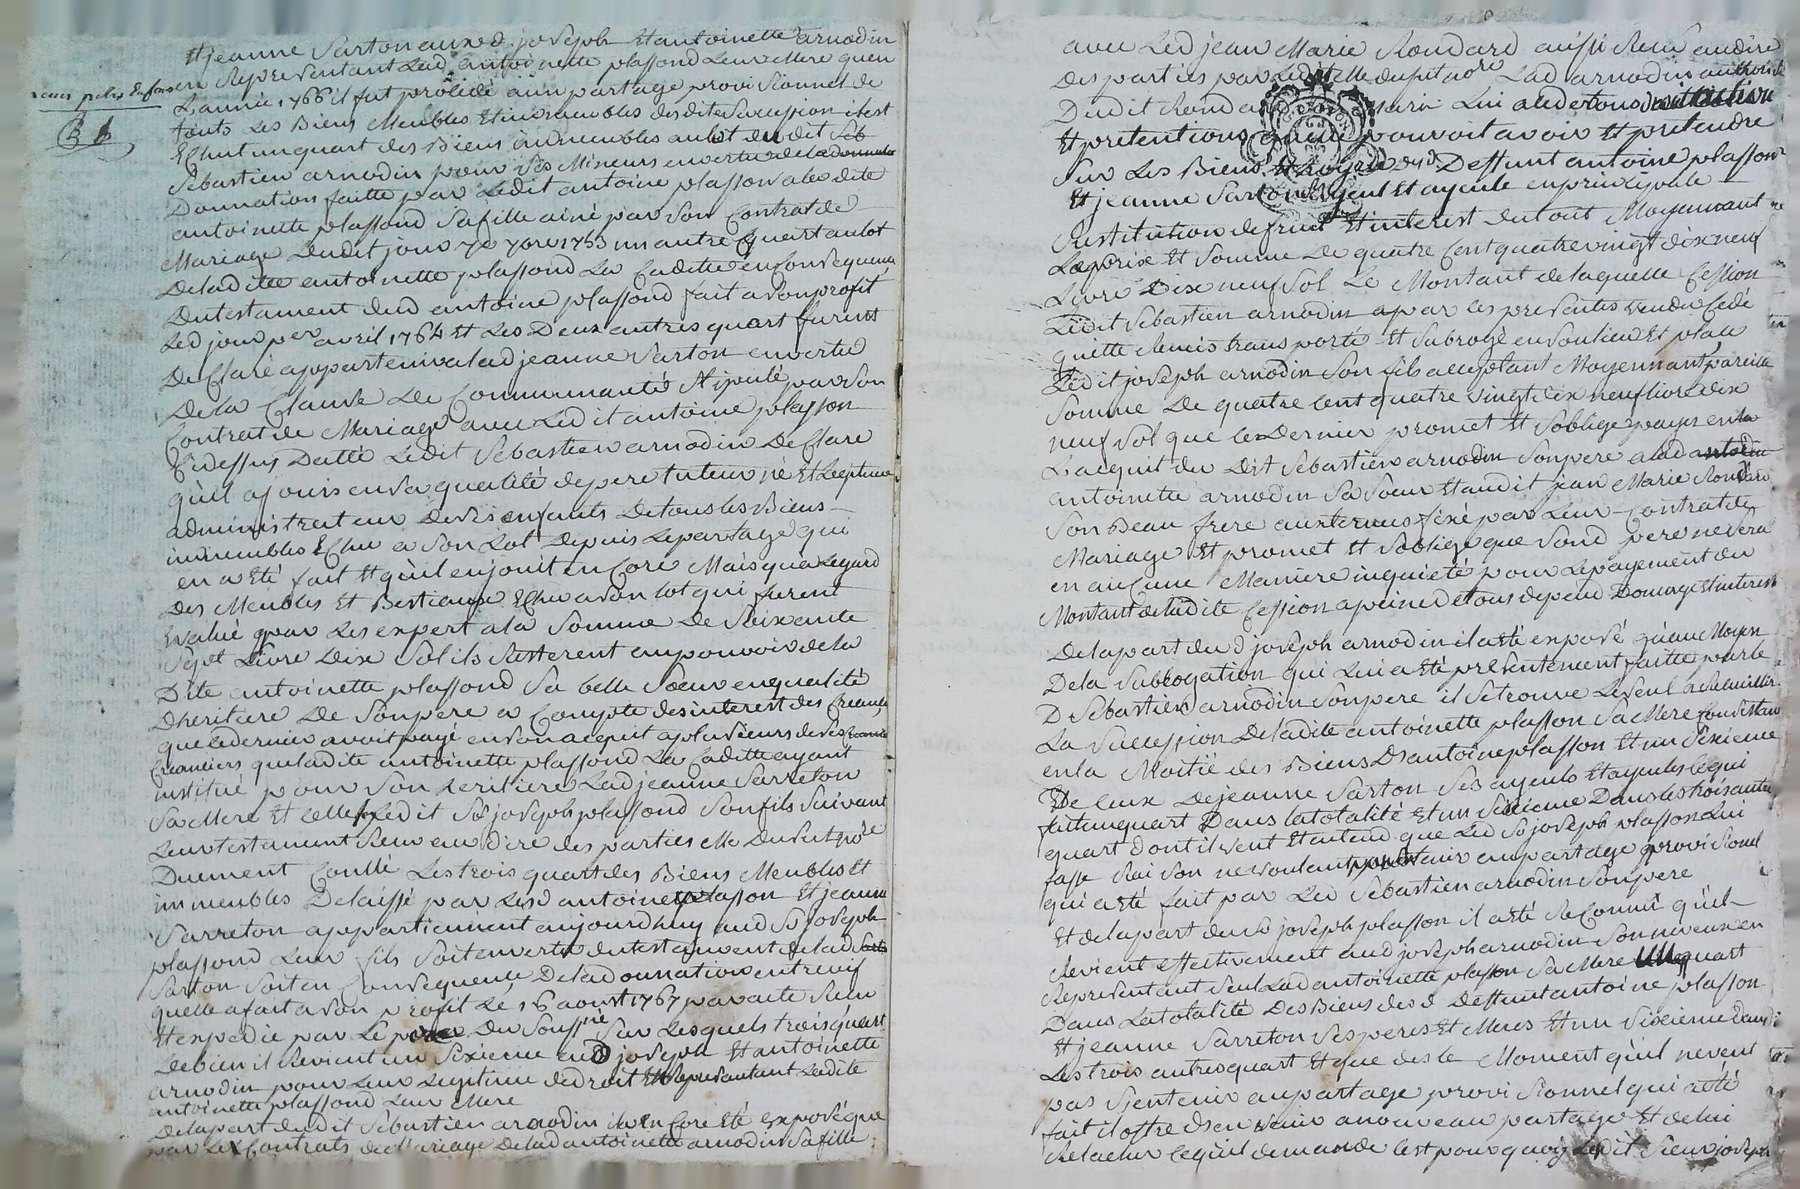 Et jeanne Sarton aux d. joseph Et antoinette arnodin
en Representant Lad. antoinette plassond Leur Mere quen
L'année 1766 il fut procédé a un partage provisionnel de
touts Les Biens Meubles Et immeubles desdites Succession il est
Echut un quart des Biens immeubles au lot du dit Seb
Sebastien arnodin pour Ses Mineurs en vertu de la
Donnation faitte par Ledit antoine plassond a la dite
antoinette plassond Sa fille ainé par Son Contrat de
Mariage dudit jour 7bre 1753 un autre quart au lot
De la dite antoinette plassond La Cadette en Consequence
Du testament dud antoine plassond fait a Son profit
Led jour per avril 1764 Et Les Deux autres quart furent
De Claré appartenir a lad jeanne Sarton en vertu
De la Clause De Communauté Stipulé par Son
Contrat de Mariage avec Ledit antoine plasson
Cy dessus Datté Ledit Sebastien arnodin De Clare
qu'il a jouis en Sa qualité de pere tuteur né Et Legitime
administrateur De Ses enfants De tous les Biens
immeubles Echu a Son Lot Depuis Le partage qui
en a Eté fait Et qu'il en jouit en Core Mais qu'a Legard
Des Meubles Et Bestiaux Echu a Son lot qui furent
Evalué par Les expert a la Somme De Soixante
Sept Livre Dix Sol ils Resterent au pouvoir de la
Dite antoinette plassond Sa belle Soeur en qualité
D'heritiere De Son pere a Compte des interest des Creances
que ce dernier avoit payé en Son acquit a plusieurs de Ses
Creantiers que ladite antoinette plassond La Cadette ayant
institué pour Son heritiere Lad jeanne Sarreton
Sa Mere Et celle cy Ledit Sr joseph plassond Son fils Suivant
Leur testament Reçu au dire des parties Me Dupuit
Duement Conllé Les trois quart des Biens Meubles Et
immeubles Delaissé par Lesd antoine plasson Et jeanne
Sarreton appartiennent aujourdhuy aud Sr joseph
plassond Leur fils Soit en vertu du testament de lad
Sarton Soit en Consequence De la donnation entre vif
quelle a fait a Son profit Le 16 aoust 1767 par acte Reçu
Et expedié par Le Soussné Sur Lesquels trois quart
De bien il Revient un Sixieme aud joseph Et antoinette
arnodin pour Leur Legitime de droit Et Representant Ladite
antoinette plassond Leur Mere
De la part dudit Sebastien arnodin il a en Core Eté exposé que
par Le Contrats de Mariage De lad antoinette arnodin Sa fille
avec Led jean Marie Rondard aussi Reçu au dire
Des parties par Ledit Me dupit Lad arnodin authorisée
Dudit Rondard mari Lui a cédé tous
Et pretentions quelle pouvoit avoir Et pretendre
Sur Les Biens Deffunt antoine plasson
Et jeanne Sarton ayeul Et ayeule en principale
Restitution de fruit Et interest du tout Moyennant
Le prix Et Somme De quatre Cent quatre vingt dix neuf
Livre Dix neuf Sol Le Montant de laquelle Cession
Ledit Sebastien arnodin a par ces presentes vendu Cedé
quitté Remis transporté Et Subrogé en Son lieu Et place
Ledit joseph arnodin Son fils acceptant Moyennant pareille
Somme De quatre Cent quatre vingt dix neuf livre dix
neuf Sol que ce Dernier promet Et S'oblige payer en la
L'acquit du Dit Sebastien arnodin Son pere a lad
antoinette arnodin Sa Soeur Et audit jean Marie Rondard
Son Beau frere aux termes fixé par Leur Contrat de
Mariage Et promet Et S'oblige que Sond pere ne Sera
en aucune Maniere inquieté pour Le payement du
Montant de ladite Cession a peine de tous depend Domage Et interest
De la part dud joseph arnodin il a Eté exposé qu'au Moyen
De la Subrogation qui Lui a Eté presentement faitte par le
D Sebastien arnodin Son pere il Se trouve Le Seul a Recuillir
La Succession De ladite antoinette plasson Sa Mere Consistant
en la Moitié des Biens D'antoine plasson Et un Sixieme
De Ceux De jeanne Sarton Ses ayeuls Et ayeules Ce qui
fait un quart Dans la totalité Et un Sixieme Dans les trois autres
quart dont il veut Et entend que Led Sr joseph plasson Lui
fasse Raison ne voulant tenir au partage provisionel
qui a Eté fait par Led Sebastien arnodin Son pere
Et de la part dud Sr joseph plasson il a Eté Reconnu qu'il
Revient effectivement aud joseph arnodin Son neveux en
Representant Seul Lad antoinette plasson Sa Mere quart
Dans La totalité Des Biens desd Deffunt antoine plasson
Et jeanne Sarreton Ses peres Et Meres Et un Sixieme dans
Les trois autres quart Et que des le Moment qu'il ne veut
pas S'en tenir au partage provisionnel qui a été
fait il offre D'en venir a nouveau partage Et de lui
Relacher ce qu'il demande C'est pour quoy Ledit Sieur joseph